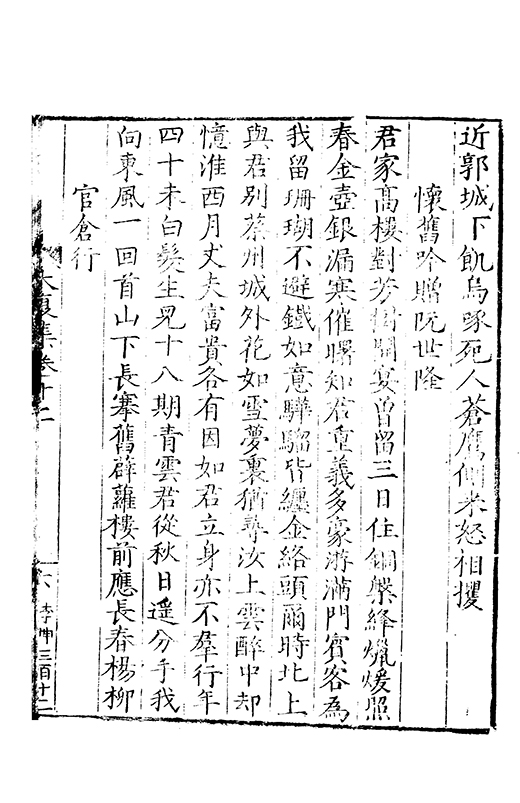 近郭城下飢烏啄死人蒼鷹側米怒相攫
懷舊吟贈阮世隆
君家髙樓對芳樹開宴曾留三日住銅槃絳爉煖照
春金壺銀漏寒催曙知君重義多豪游滿門賓客爲
我留珊瑚不避鐵如意驊騮皆纏金絡頭爾時北上
與君別蔡州城外花如雪夢裏猶尋汝上雲醉中却
憶淮西月丈夫富貴各有因如君立身亦不羣行年
四十未白髮生兒十八期青雲君從秋日遥分手我
向東風一回首山下長搴舊薜蘿樓前應長春楊柳
官倉行
大復集卷十二
六
李坤三百十二